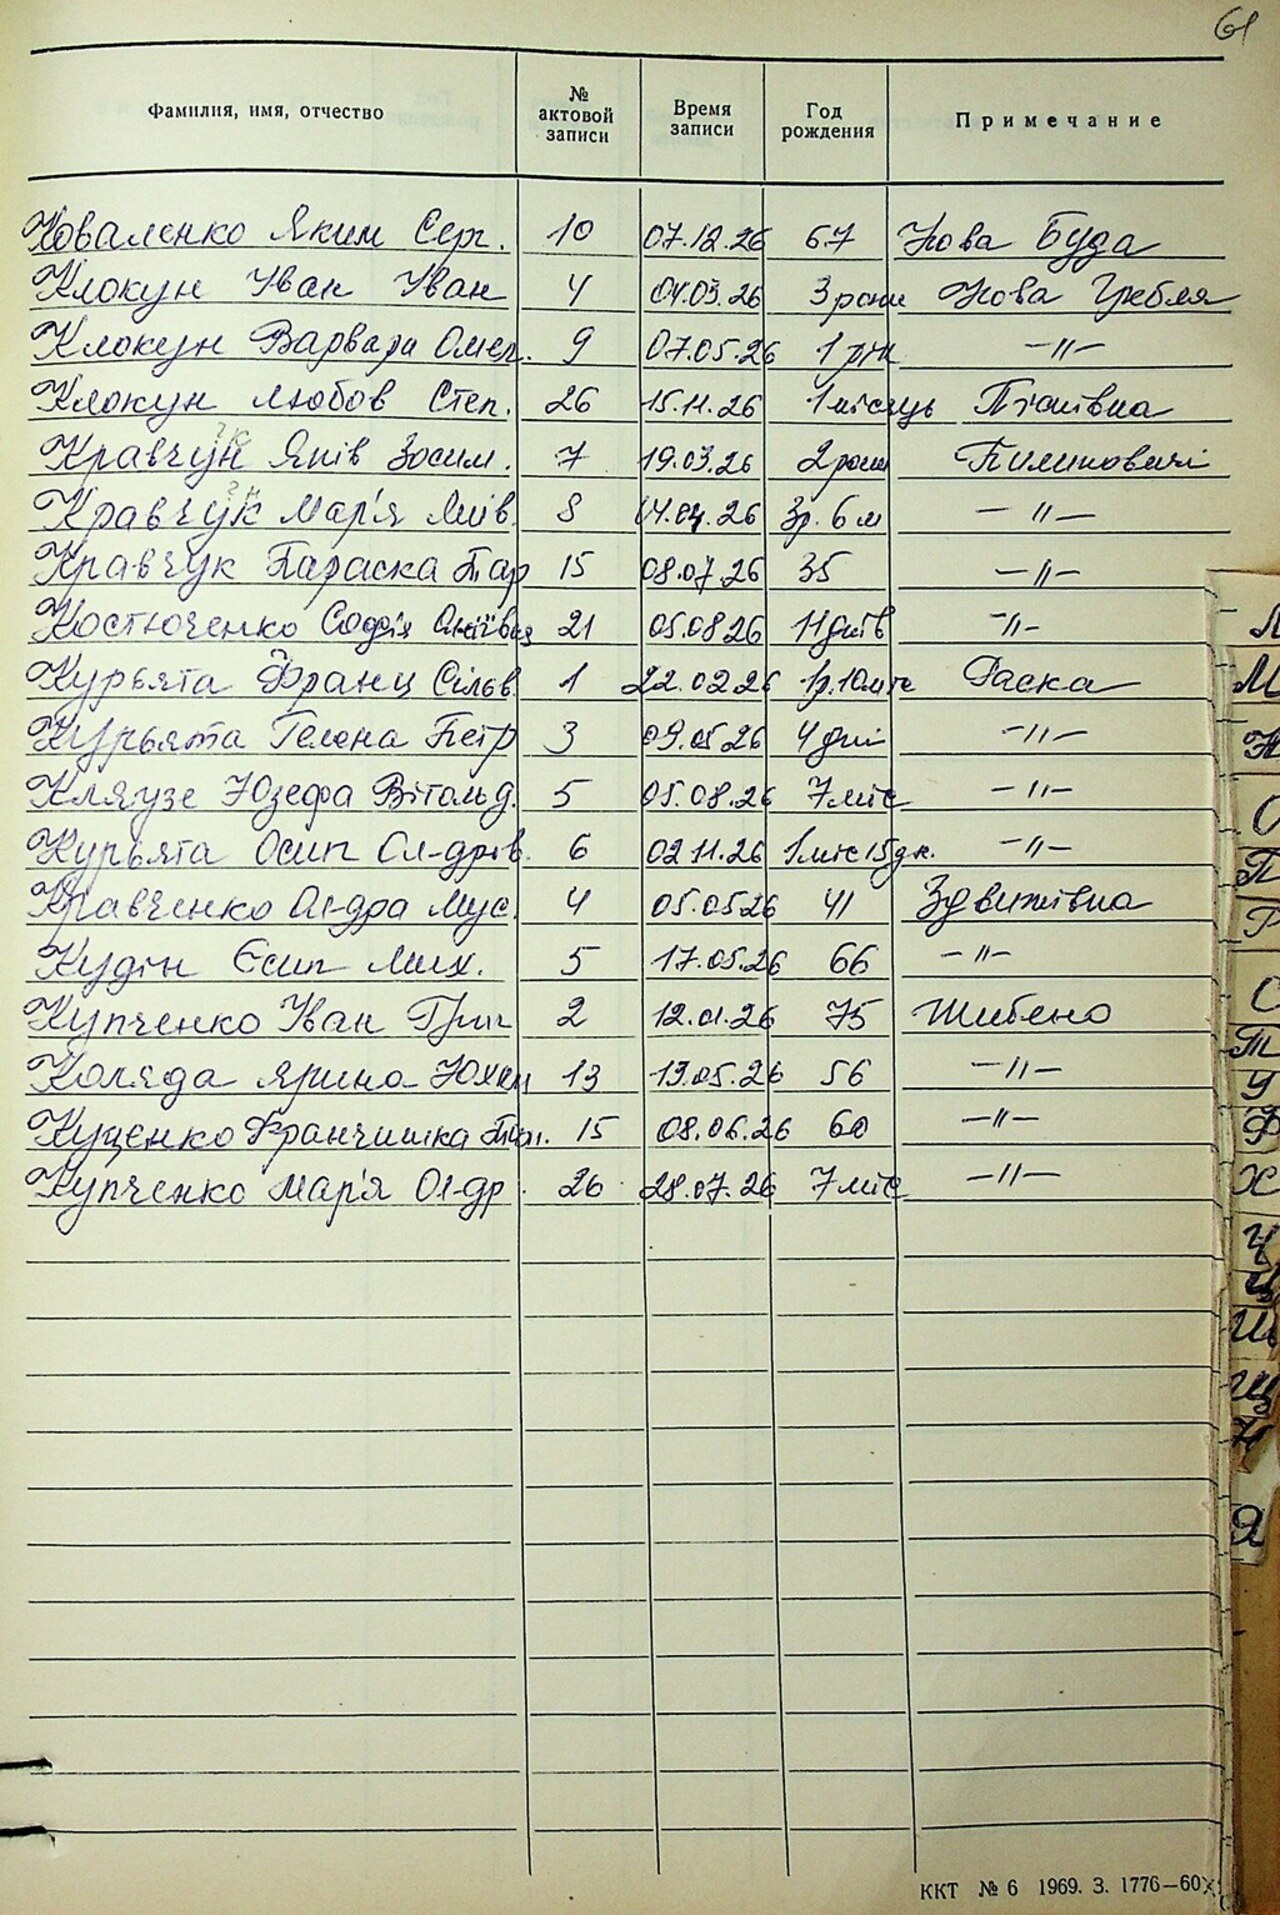 61
Фамилия, имя, отчество № актовой записи Время записи Год рождения Примечание
Коваленко Яким Серг. 10 07.12.26 67 Нова Буда
Клокун Іван Іван 4 04.03.26 3 роки Нова Гребля
Клокун Варвара Омел. 9 07.05.26 1 рік —"—
Клокун Любов Степ. 26 15.11.26 1 місяць Пісківка
Кравчун Яків Зосим. 7 19.03.26 2 роки Пилиповичі
Кравчук Мар'я Яків. 8 14.04.26 3р. 6 м —"—
Кравчук Параска Тар 15 08.07.26 35 —"—
Костюченко Софія 21 05.08.26 11 днів —"—
Курьята Франц Сільв. 1 22.02.26 1р.10міс Раска
Курьята Гелена Петр 3 09.05.26 4 дні —"—
Кляузе Юзефа Вітольд. 5 05.08.26 7 міс —"—
Курьята Осип Ол-дрів. 6 02.11.26 1 міс 15 дн. —"—
Кравченко Ол-дра Мус. 4 05.05.26 41 Здвижівка
Кудін Єсип Мих. 5 17.05.26 66 —"—
Купченко Іван Григ 2 12.01.26 75 Шибено
Коляда Ярина Юхим 13 13.05.26 56 —"—
Куценко Франчишка 15 08.06.26 60 —"—
Купченко Мар'я Ол-др. 26 28.07.26 7 міс —"—
Л
М
Н
О
П
Р
С
Т
У
Ф
Х
Ч
Ц
Ш
Щ
Я
ККТ № 6 1969. З. 1776—60